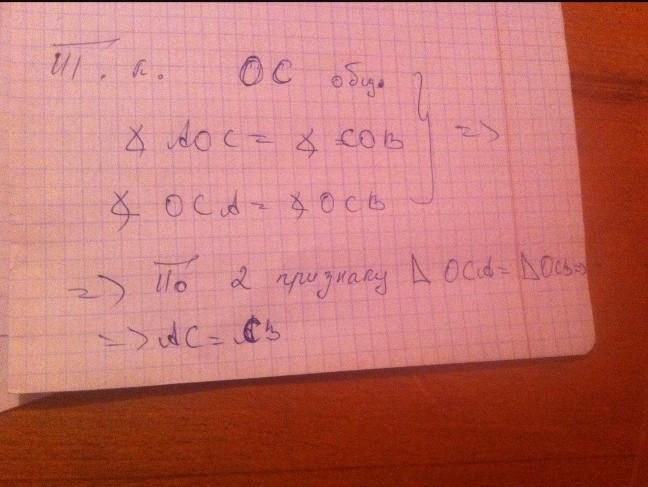 Т. к. OC общ.
∠ AOC = ∠ COB } =>
∠ OCA = ∠ OCB
=> По 2 признаку Δ OCA = Δ OCB =>
=> AC = CB